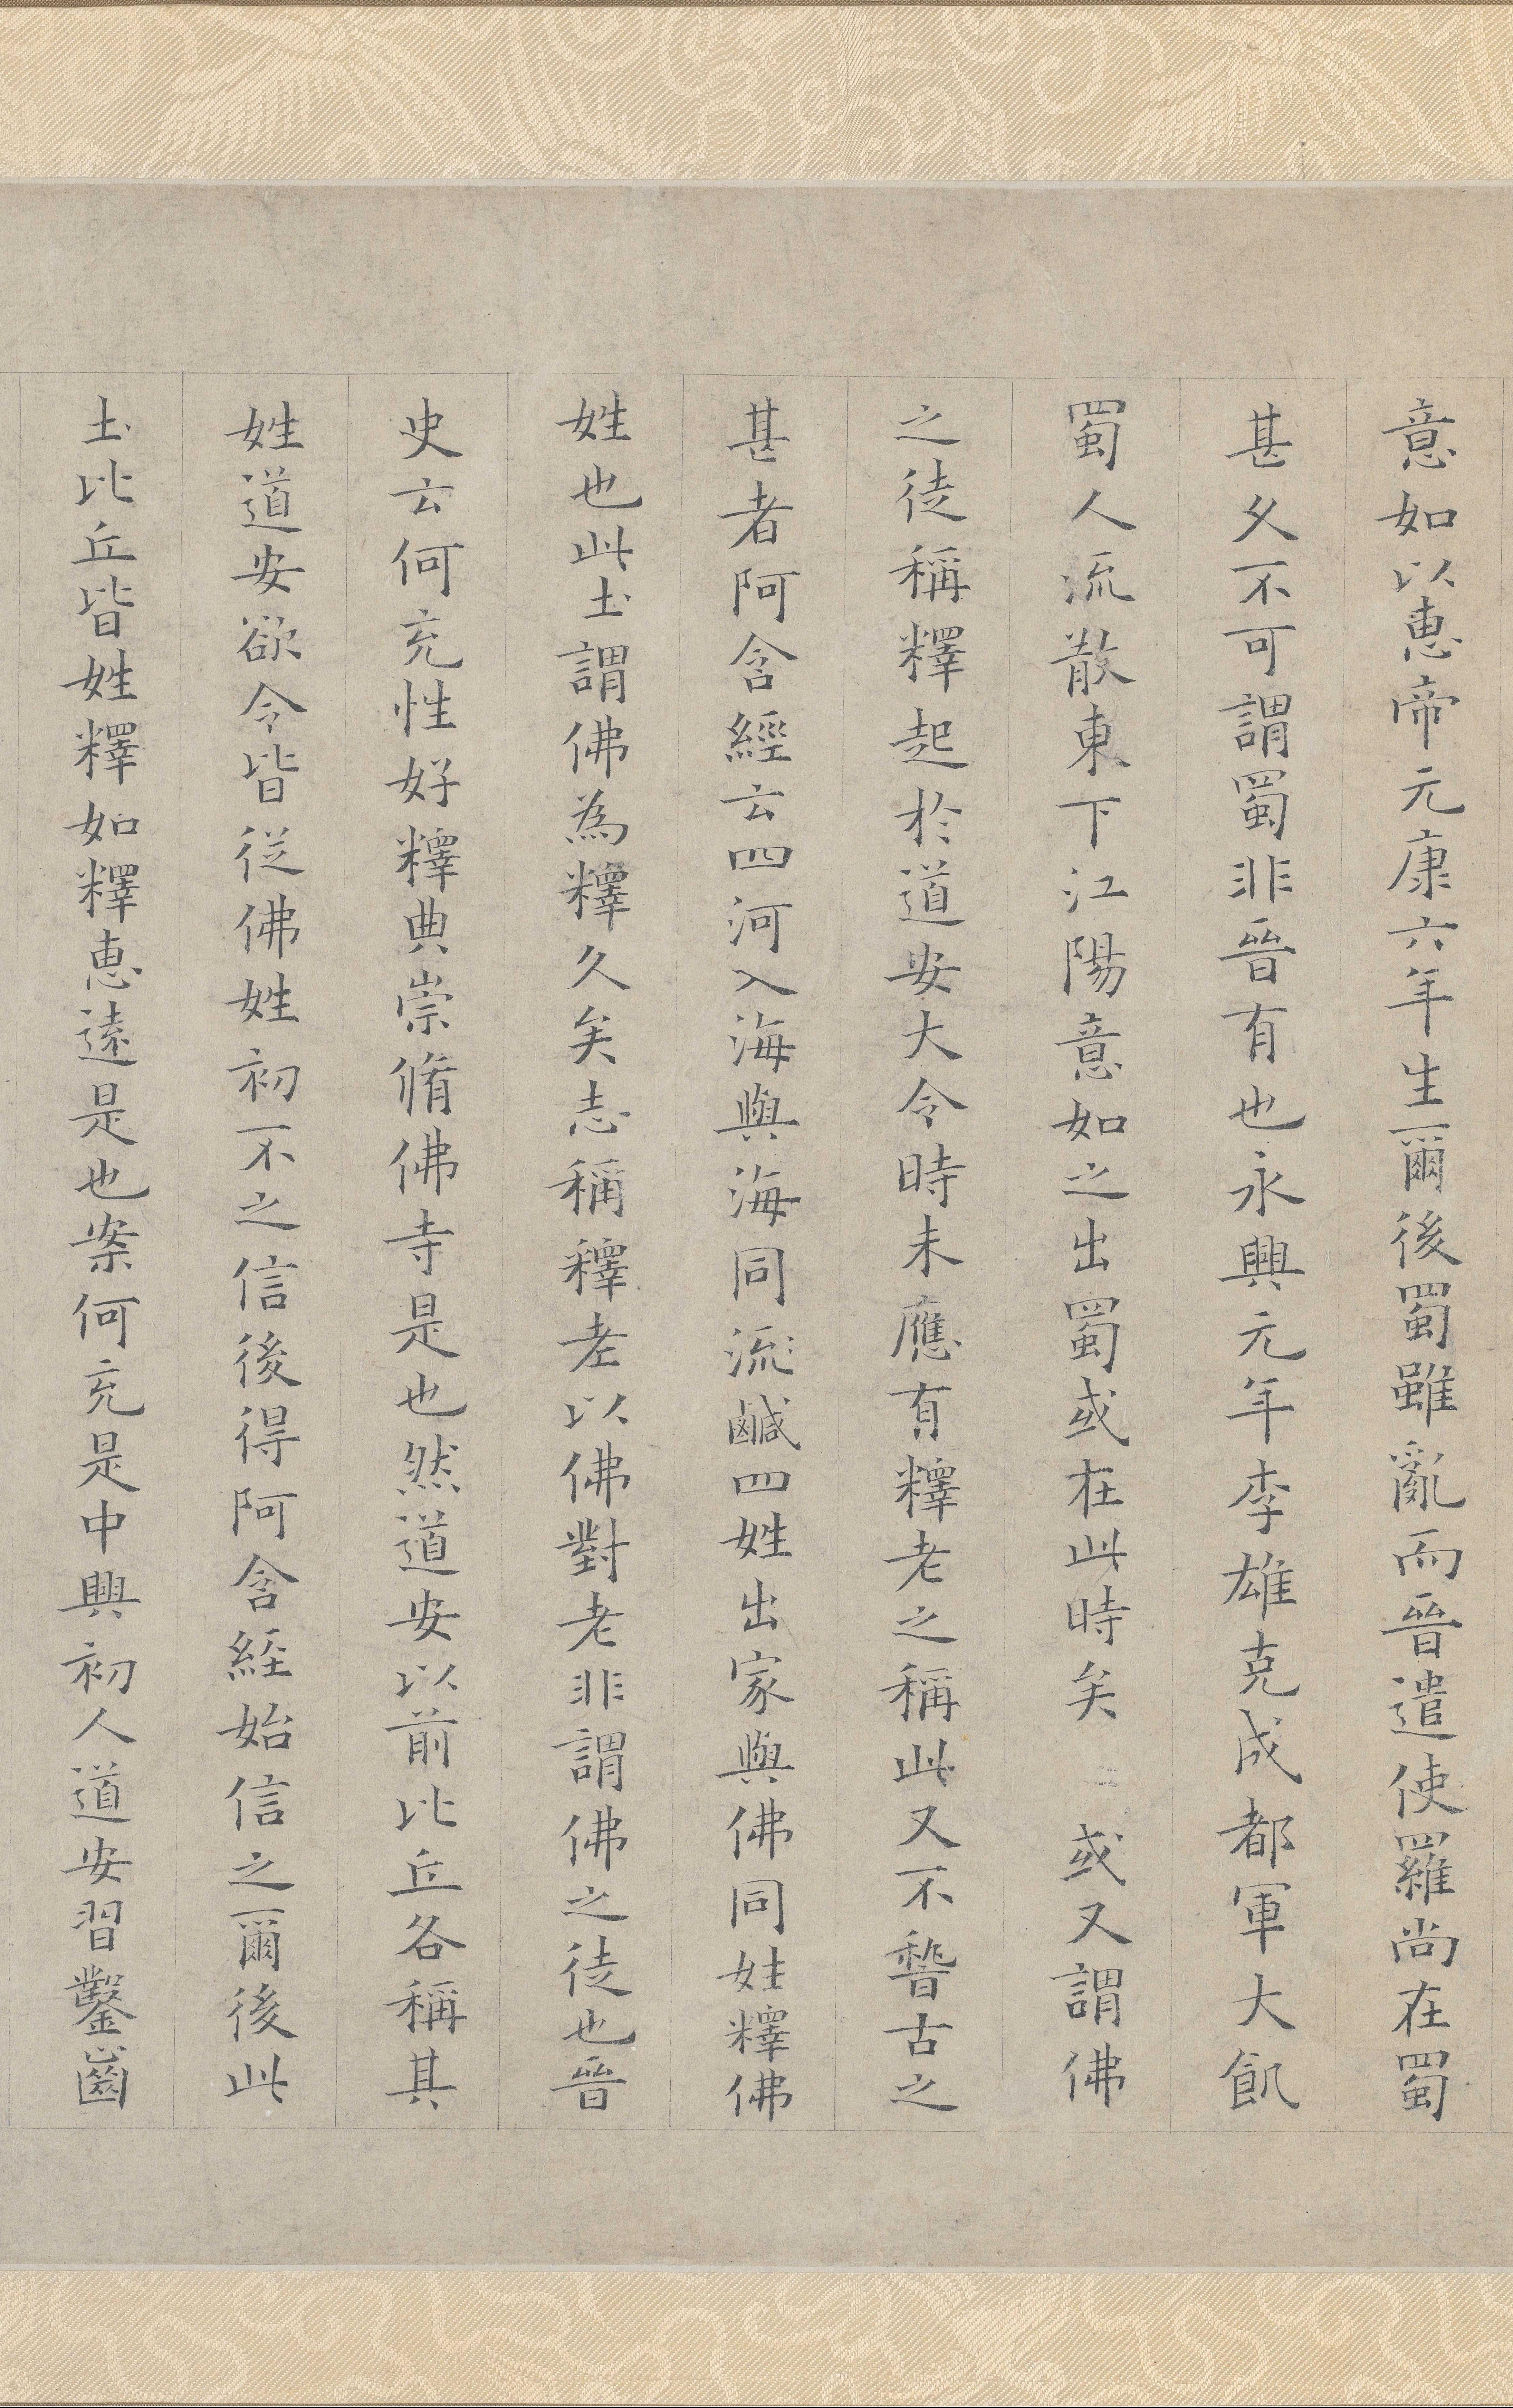 意如以惠帝元康六年生爾後蜀雖亂而晉遣使羅尚在蜀
甚久不可謂蜀非晉有也永興元年李雄克成都軍大飢
蜀人流散東下江陽意如之出蜀或在此時矣 或又謂佛
之徒稱釋起於道安大令時未應有釋老之稱此又不稽古之
甚者阿含經云四河入海與海同流鹹四姓出家與佛同姓釋佛
姓也此土謂佛為釋久矣志稱釋老以佛對老非謂佛之徒也晉
史云何充性好釋典崇脩佛寺是也然道安以前比丘各稱其
姓道安欲令皆從佛姓初不之信後得阿含經始信之爾後此
土比丘皆姓釋如釋惠遠是也案何充是中興初人道安習鑿齒